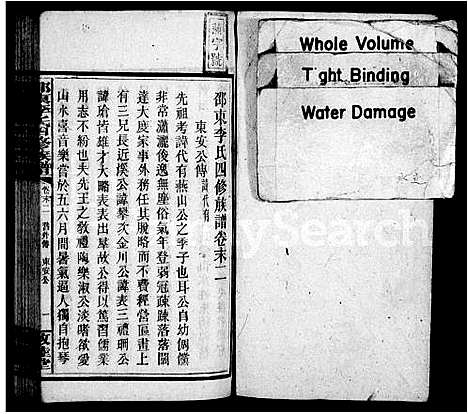 邵東李氏四修族譜卷末二
東安公傳 諱代有
先祖考諱代有燕山公之季子也自幼倜儻
非常瀟灑後逸無塵俗氣年登弱冠疎疎落落闊
達大度家事外務任其脫略而不費經營區畫上
有三兄長近溪公諱擧次金川公諱表三禮珂公
諱瑜皆雄才大略表表出羣故公得以篤習儒業
用志不紛也夫先王之敎禮陶樂淑公淡嗜欲愛
山水喜音樂嘗於五六月間暑氣逼人獨自抱琴
卷末二 東安公 一
敦睦堂
Whole Volume
Tight Binding
Water Damage
mySearch